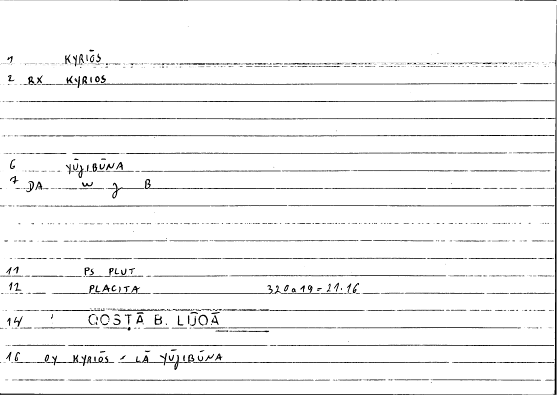 1 KYRIŌS
2 RX KYRIOS
6 YŪǦIBŪNA
7 DA w ǧ B
11 PS PLUT
12 PLACITA 320a19 = 21.16
14 QOSṬĀ B. LŪQĀ
16 OY KYRIŌS / LĀ YŪǦIBŪNA